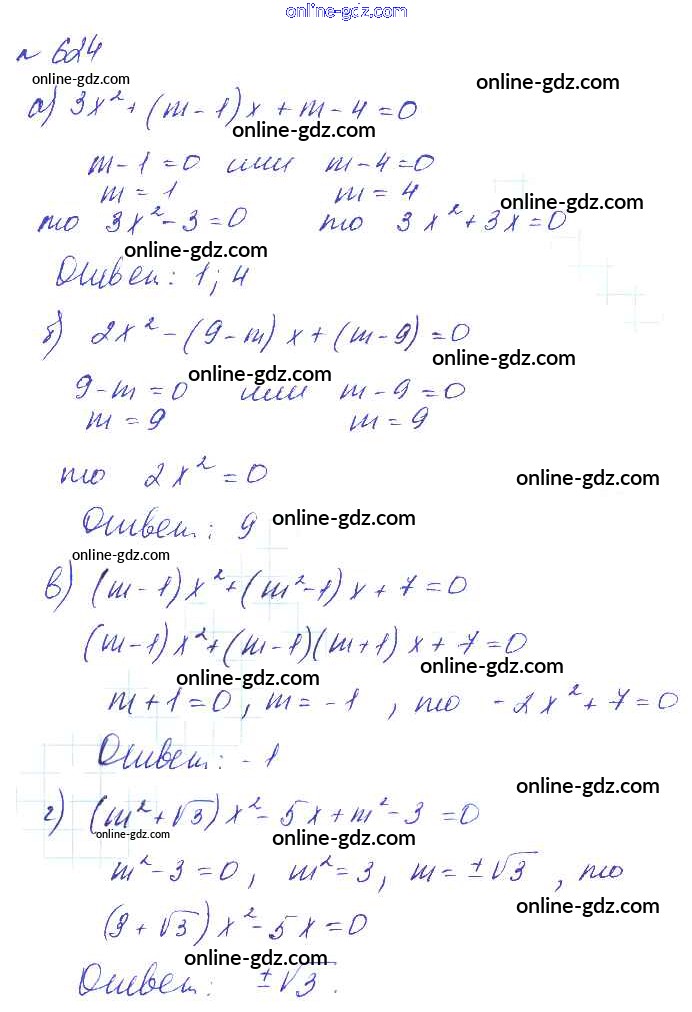 online-gdz.com
№ 624
online-gdz.com online-gdz.com
а) 3x² + (m - 1)x + m - 4 = 0
online-gdz.com
m - 1 = 0 или m - 4 = 0
m = 1 m = 4
online-gdz.com
то 3x² - 3 = 0 то 3x² + 3x = 0
online-gdz.com
Ответ: 1; 4
б) 2x² - (9 - m)x + (m - 9) = 0
online-gdz.com
online-gdz.com
9 - m = 0 или m - 9 = 0
m = 9 m = 9
то 2x² = 0 online-gdz.com
Ответ: 9 online-gdz.com
online-gdz.com
в) (m - 1)x² + (m² - 1)x + 7 = 0
(m - 1)x² + (m - 1)(m + 1)x + 7 = 0
online-gdz.com online-gdz.com
m + 1 = 0, m = -1, то -2x² + 7 = 0
Ответ: -1
online-gdz.com
г) (m² + √3)x² - 5x + m² - 3 = 0
online-gdz.com online-gdz.com
m² - 3 = 0, m² = 3, m = ±√3, то
online-gdz.com
(3 + √3)x² - 5x = 0
online-gdz.com
Ответ: ±√3.